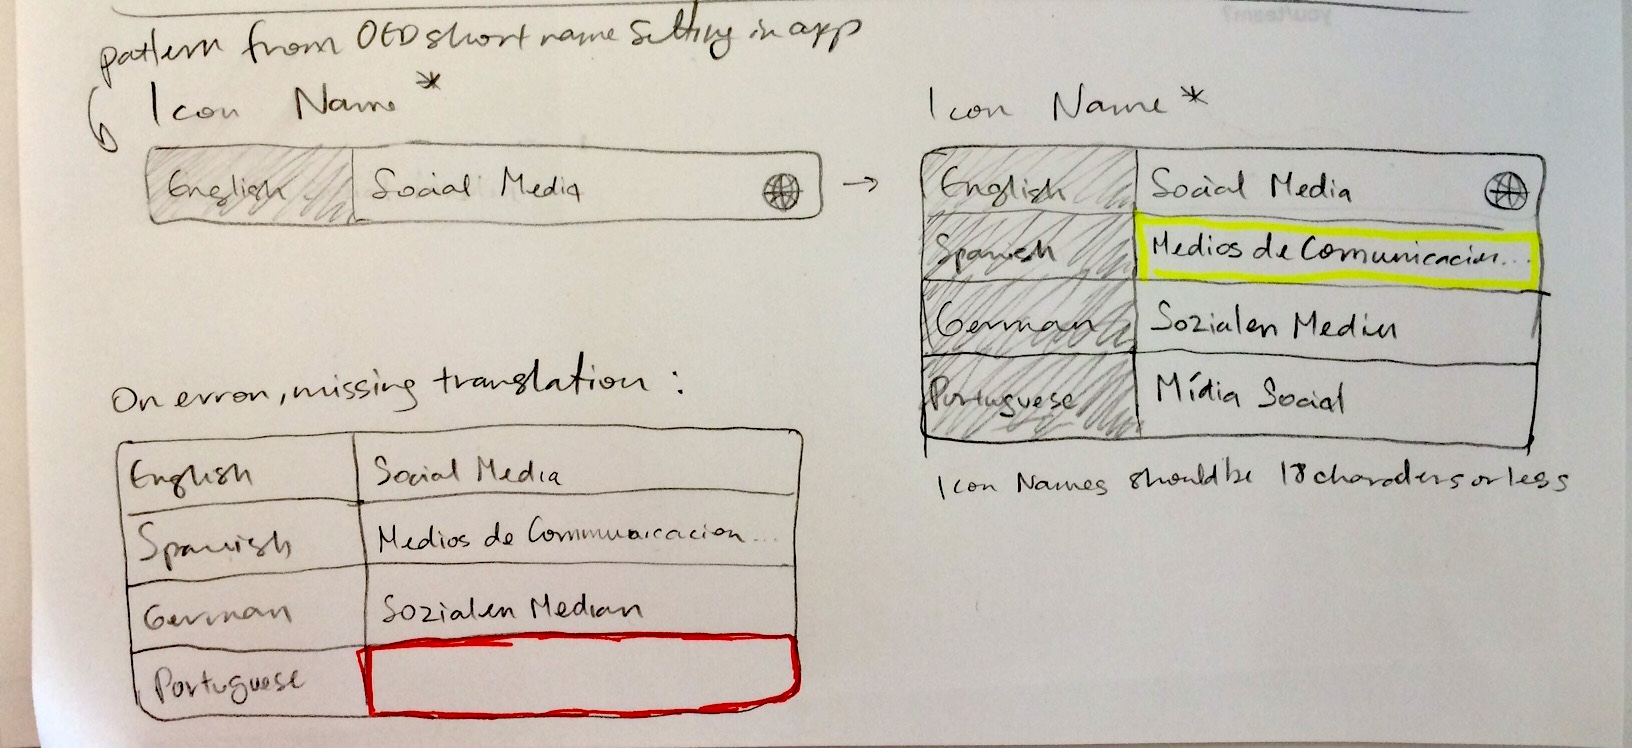 pattern from OED short name setting in app
Icon Name*
English Social Media
→
Icon Name*
English Social Media
Spanish Medios de Comunicacion...
German Sozialen Medien
Portuguese Mídia Social
Icon Names should be 18 characters or less
On error, missing translation:
English Social Media
Spanish Medios de Communicacion...
German Sozialen Median
Portuguese